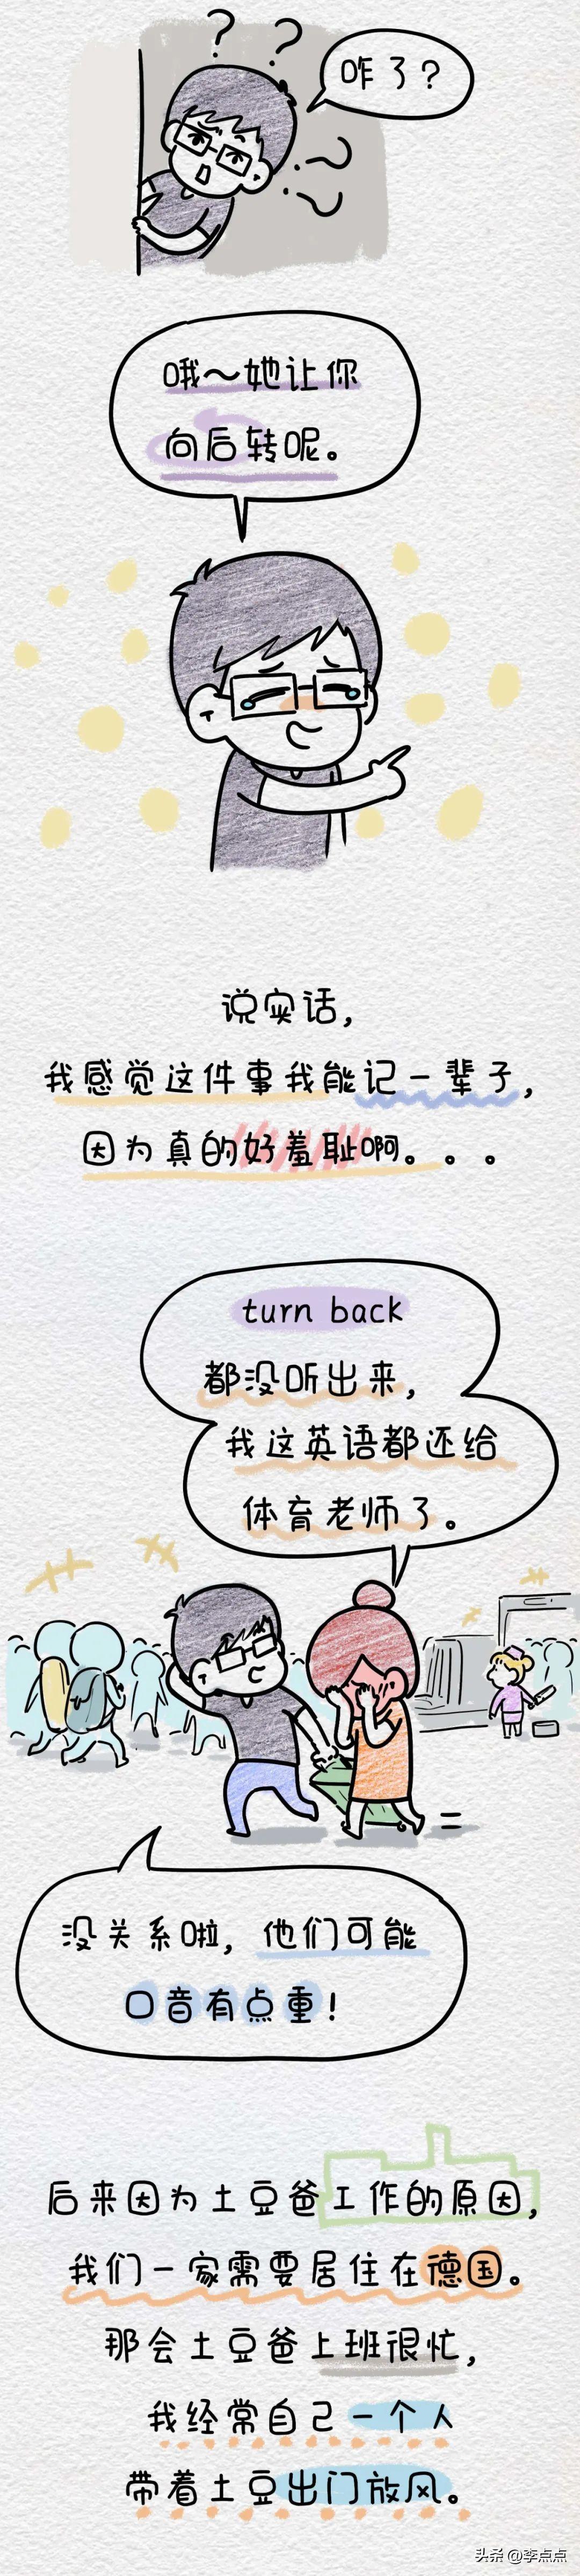 咋了？
哦～她让你
向后转呢。
说实话，
我感觉这件事我能记一辈子，
因为真的好羞耻啊。。。
turn back
都没听出来，
我这英语都还给
体育老师了。
没关系啦，他们可能
口音有点重！
后来因为土豆爸工作的原因，
我们一家需要居住在德国。
那会土豆爸上班很忙，
我经常自己一个人
带着土豆出门放风。
头条 @李点点